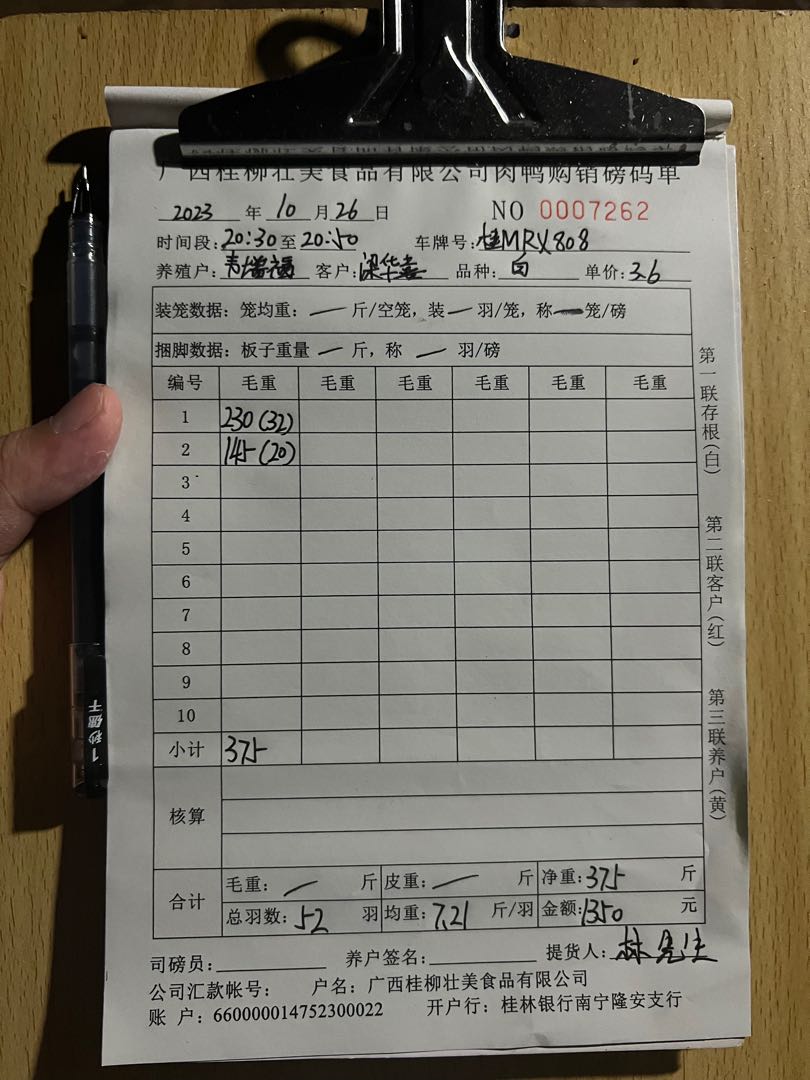 广西桂柳壮美食品有限公司肉鸭购销磅码单
2023 年 10 月 26 日 NO 0007262
时间段: 20:30 至 20:50 车牌号: 桂MRX808
养殖户: 韦瑞福 客户: 梁华 品种: 白 单价: 3.6
装笼数据: 笼均重: — 斤/空笼, 装 — 羽/笼, 称 — 笼/磅
捆脚数据: 板子重量 — 斤, 称 — 羽/磅
编号 毛重 毛重 毛重 毛重 毛重 毛重
1 230 (32)
2 145 (20)
3
4
5
6
7
8
9
10
小计 375
核算
合计 毛重: — 斤 皮重: — 斤 净重: 375 斤
总羽数: 52 羽 均重: 7.21 斤/羽 金额: 1350 元
司磅员: 养户签名: 提货人: 林先生
公司汇款帐号: 户名: 广西桂柳壮美食品有限公司
账 户: 660000014752300022 开户行: 桂林银行南宁隆安支行
第一联存根(白)
第二联客户(红)
第三联养户(黄)
1秒速干